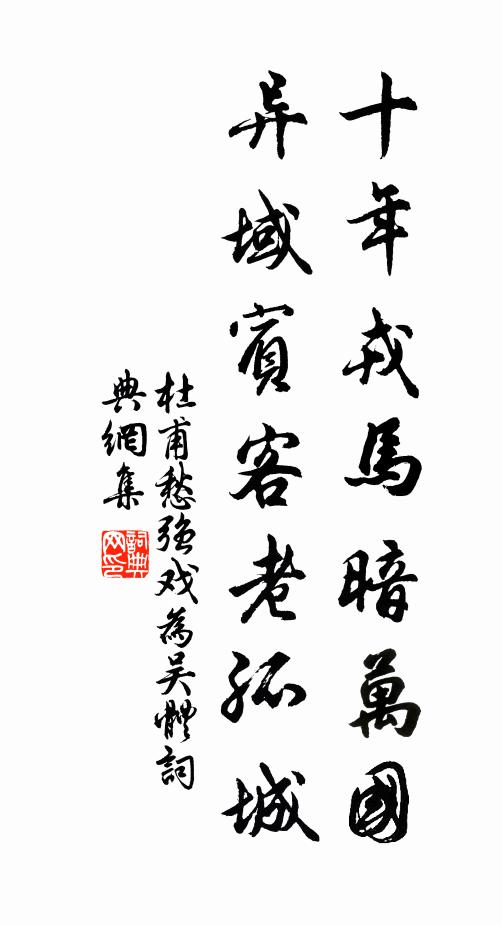 十年戎馬暗萬國
异域賓客老孤城
杜甫愁强戏為吴體詞
典網集
詞典网印